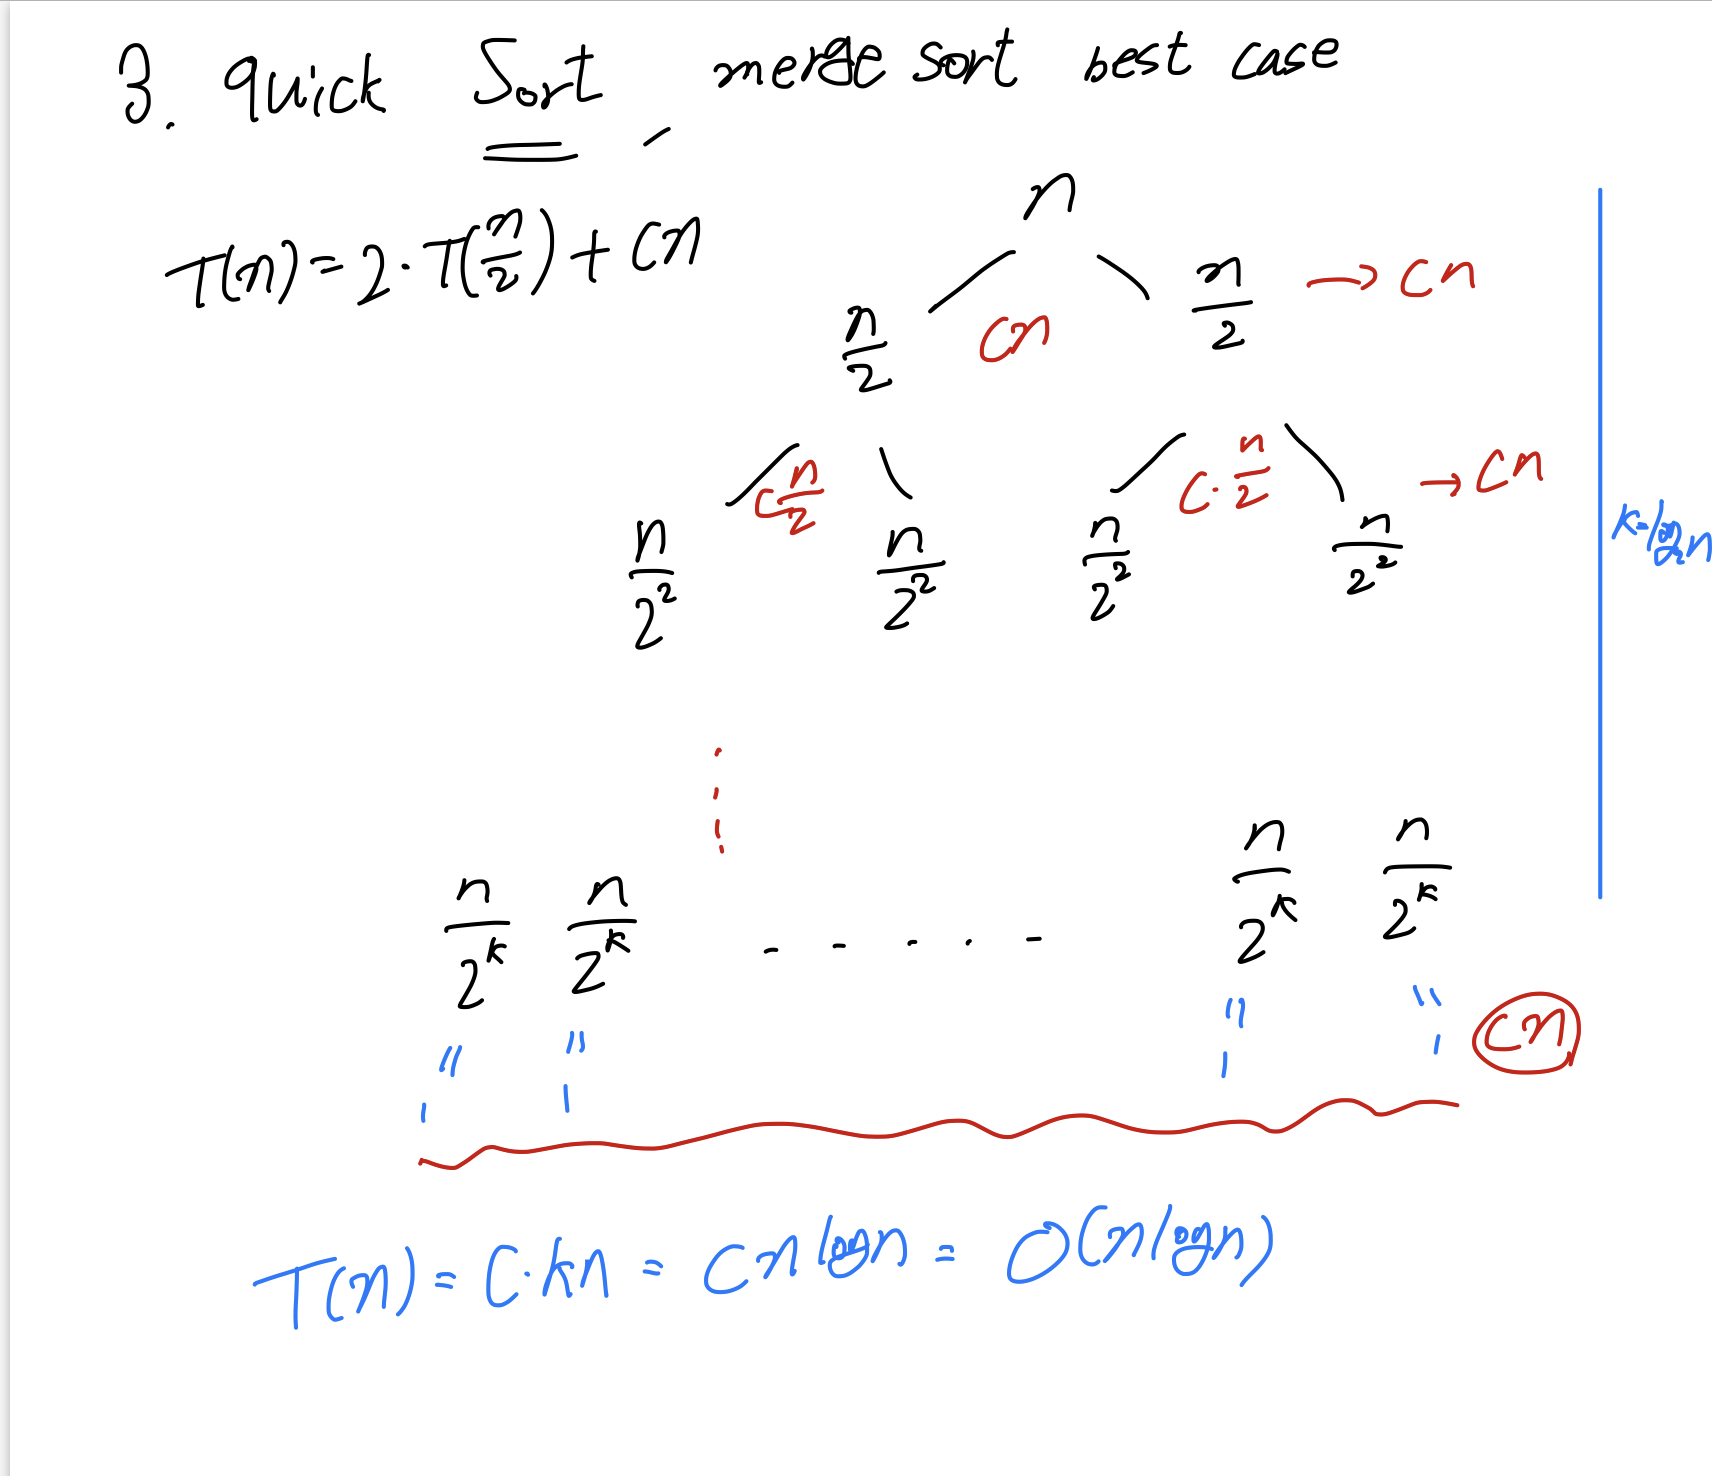 3. quick Sort, merge sort best case
n
T(n) = 2·T(n/2) + cn
n/2 cn n/2 → cn
c n/2 c· n/2 → cn
n/2² n/2² n/2² n/2² k=log₂n
n/2ᵏ n/2ᵏ - - · · - n/2ᵏ n/2ᵏ
" " " "
1 1 1 1 cn
T(n) = C·kn = cn logn = O(nlogn)